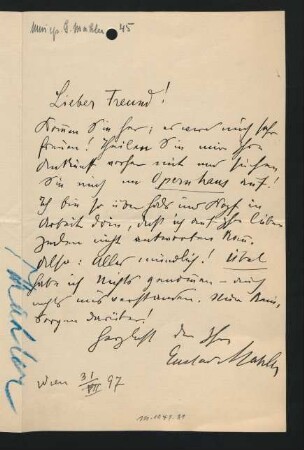 45
Lieber Freund!
Kommen Sie her; es wird mich sehr
freuen! Theilen Sie mir Ihre
Ankunft vorher mit und suchen
Sie mich im Opernhaus auf!
Ich bin so über Hals und Kopf in
Arbeit drin, daß ich auf Ihre lieben
Zeilen nicht antworten kann.
Also: Alles mündlich! Übel
habe ich Nichts genommen – auch
nichts mißverstanden. Also keine
Sorgen darüber!
Herzlichst der Ihre
Gustav Mahler
Wien 31/VII 97
Mahler